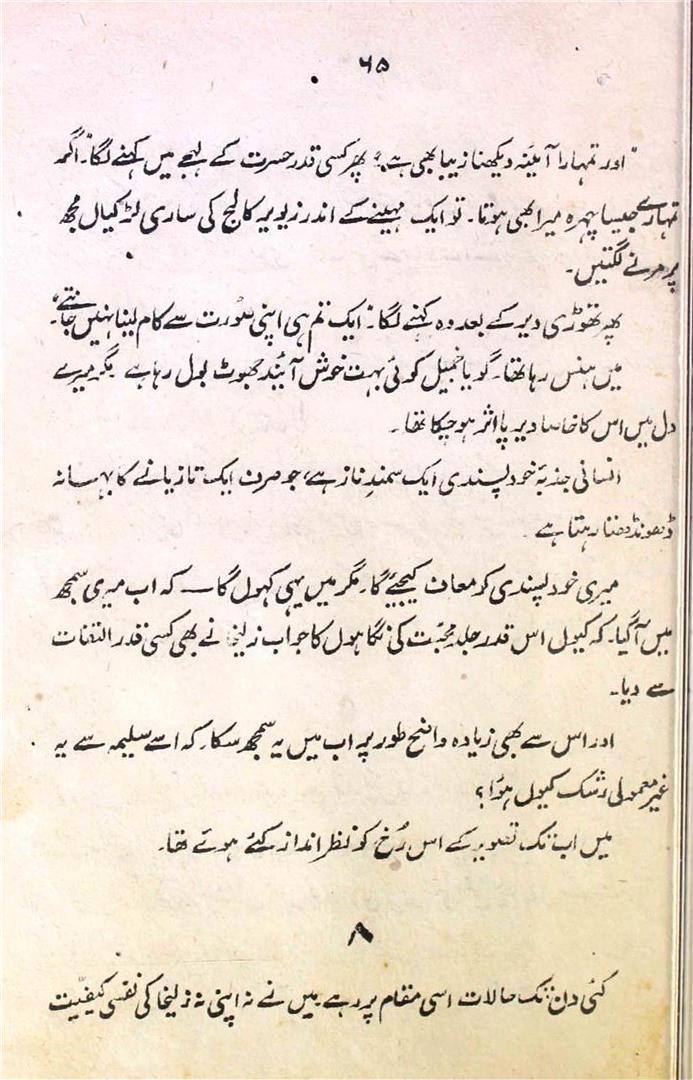 ۶۵
"اور تمہارا آئینہ دیکھنا زیبا بھی ہے"؛ پھر کسی قدر حسرت کے لہجے میں کہنے لگا۔ "اگر
تمہارے جیسا چہرہ میرا بھی ہوتا۔ تو ایک مہینے کے اندر زیویر کالج کی ساری لڑکیاں مجھ
پر مرنے لگتیں۔
پھر تھوڑی دیر کے بعد وہ کہنے لگا۔ "ایک تم ہی اپنی صورت سے کام لینا نہیں جانتے"۔
میں ہنس رہا تھا۔ گویا جمیل کوئی بہت خوش آئند جھوٹ بول رہا ہے۔ مگر میرے
دل میں اس کا خاصا دیر پا اثر ہو چکا تھا۔
انسانی جذبۂ خود پسندی ایک سمندِ ناز ہے، جو صرف ایک تازیانے کا بہانہ
ڈھونڈھتا رہتا ہے۔
میری خود پسندی کو معاف کیجیے گا۔ مگر میں یہی کہوں گا — کہ اب میری سمجھ
میں آ گیا۔ کہ کیوں اس قدر جلد محبّت کی نگاہوں کا جواب زلیخا نے بھی کسی قدر التفات
سے دیا۔
اور اس سے بھی زیادہ واضح طور پر اب میں یہ سمجھ سکا۔ کہ اسے سلیمہ سے یہ
غیر معمولی رشک کیوں ہوٗا؟
میں اب تک تصویر کے اس رُخ کو نظر انداز کئے ہوئے تھا۔
۸
کئی دن تک حالات اسی مقام پر رہے۔ میں نے نہ اپنی نہ زلیخا کی نفسی کیفیّت